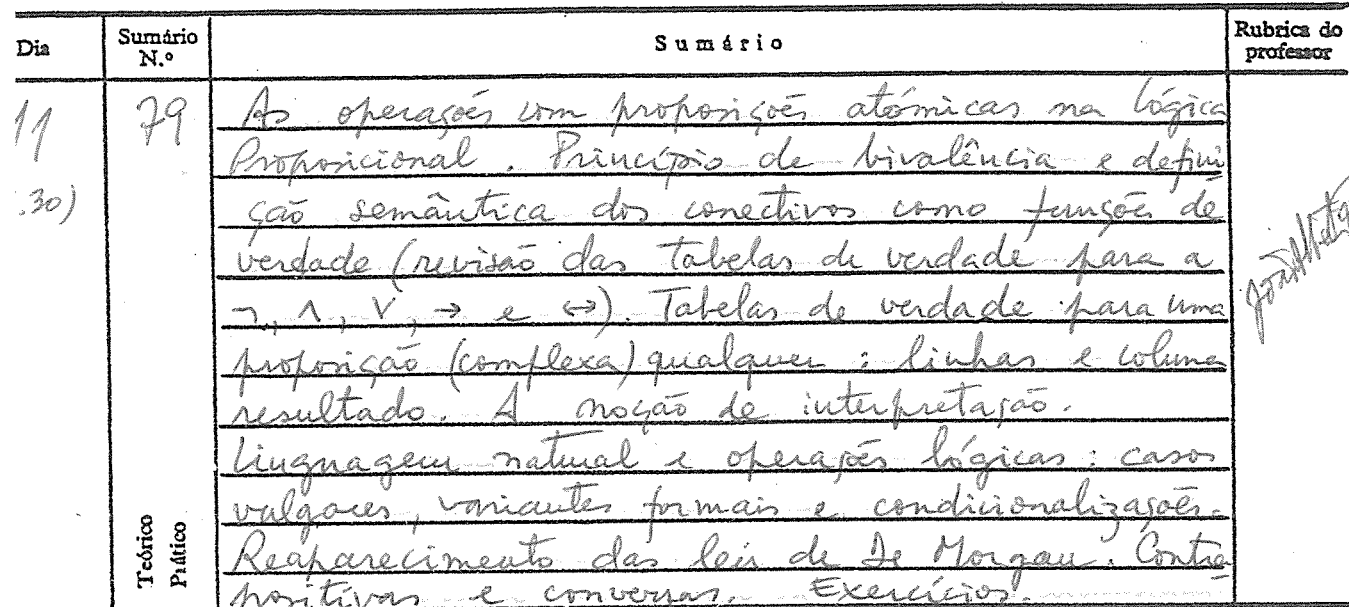 Dia Sumário N.º Sumário Rubrica do professor
11 79 As operações com proposições atómicas na lógica
Proposicional. Princípio de bivalência e defini
.30) ção semântica dos conectivos como funções de
verdade (revisão das tabelas de verdade para a
¬, ∧, ∨, → e ↔). Tabelas de verdade para uma
proposição (complexa) qualquer: linhas e coluna
resultado. A noção de interpretação.
Linguagem natural e operações lógicas: casos
vulgares, variantes formais e condicionalizações.
Reaparecimento das leis de De Morgan. Contra
positivas e conversas. Exercícios.
Teórico
Prático